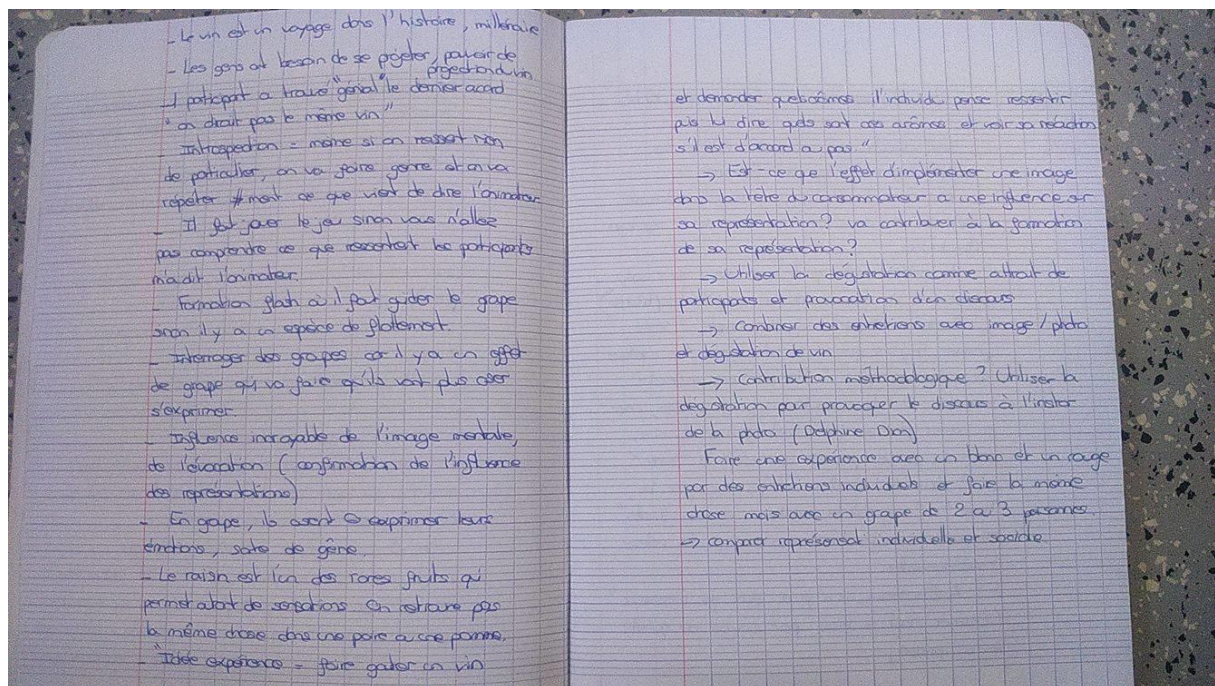 - Le vin est un voyage dans l'histoire, millénaire
- Les gens ont besoin de se projeter, pouvoir de
projection du vin
- 1 participant a trouvé "génial" le dernier accord
"on dirait pas le même vin"
- Introspection = même si on ressent rien
de particulier, on va faire genre et on va
répéter #ment ce que vient de dire l'animateur
- Il faut jouer le jeu sinon vous n'allez
pas comprendre ce que ressentent les participants
m'a dit l'animateur.
- Formation flash où il faut guider le groupe
sinon il y a un espèce de flottement.
- Interroger des groupes car il y a un effet
de groupe qui va faire qu'ils vont plus oser
s'exprimer
- Influence incroyable de l'image mentale,
de l'évocation (confirmation de l'influence
des représentations)
- En groupe, ils osent exprimer leurs
émotions, sorte de gêne.
- Le raisin est l'un des rares fruits qui
permet autant de sensations. On retrouve pas
la même chose dans une poire ou une pomme.
- "Idée expérience = faire goûter un vin
et demander quels arômes l'individu pense ressentir
puis lui dire quels sont ces arômes et voir sa réaction
s'il est d'accord ou pas."
-> Est-ce que l'effet d'implémenter une image
dans la tête du consommateur a une influence sur
sa représentation? va contribuer à la formation
de sa représentation?
-> Utiliser la dégustation comme attrait de
participants et provocation d'un discours
-> Combiner des entretiens avec image / photo
et dégustation de vin
-> Contribution méthodologique? Utiliser la
dégustation pour provoquer le discours à l'instar
de la photo (Delphine Dion)
Faire une expérience avec un blanc et un rouge
par des entretiens individuels et faire la même
chose mais avec un groupe de 2 à 3 personnes.
-> représentat individuelle et sociale